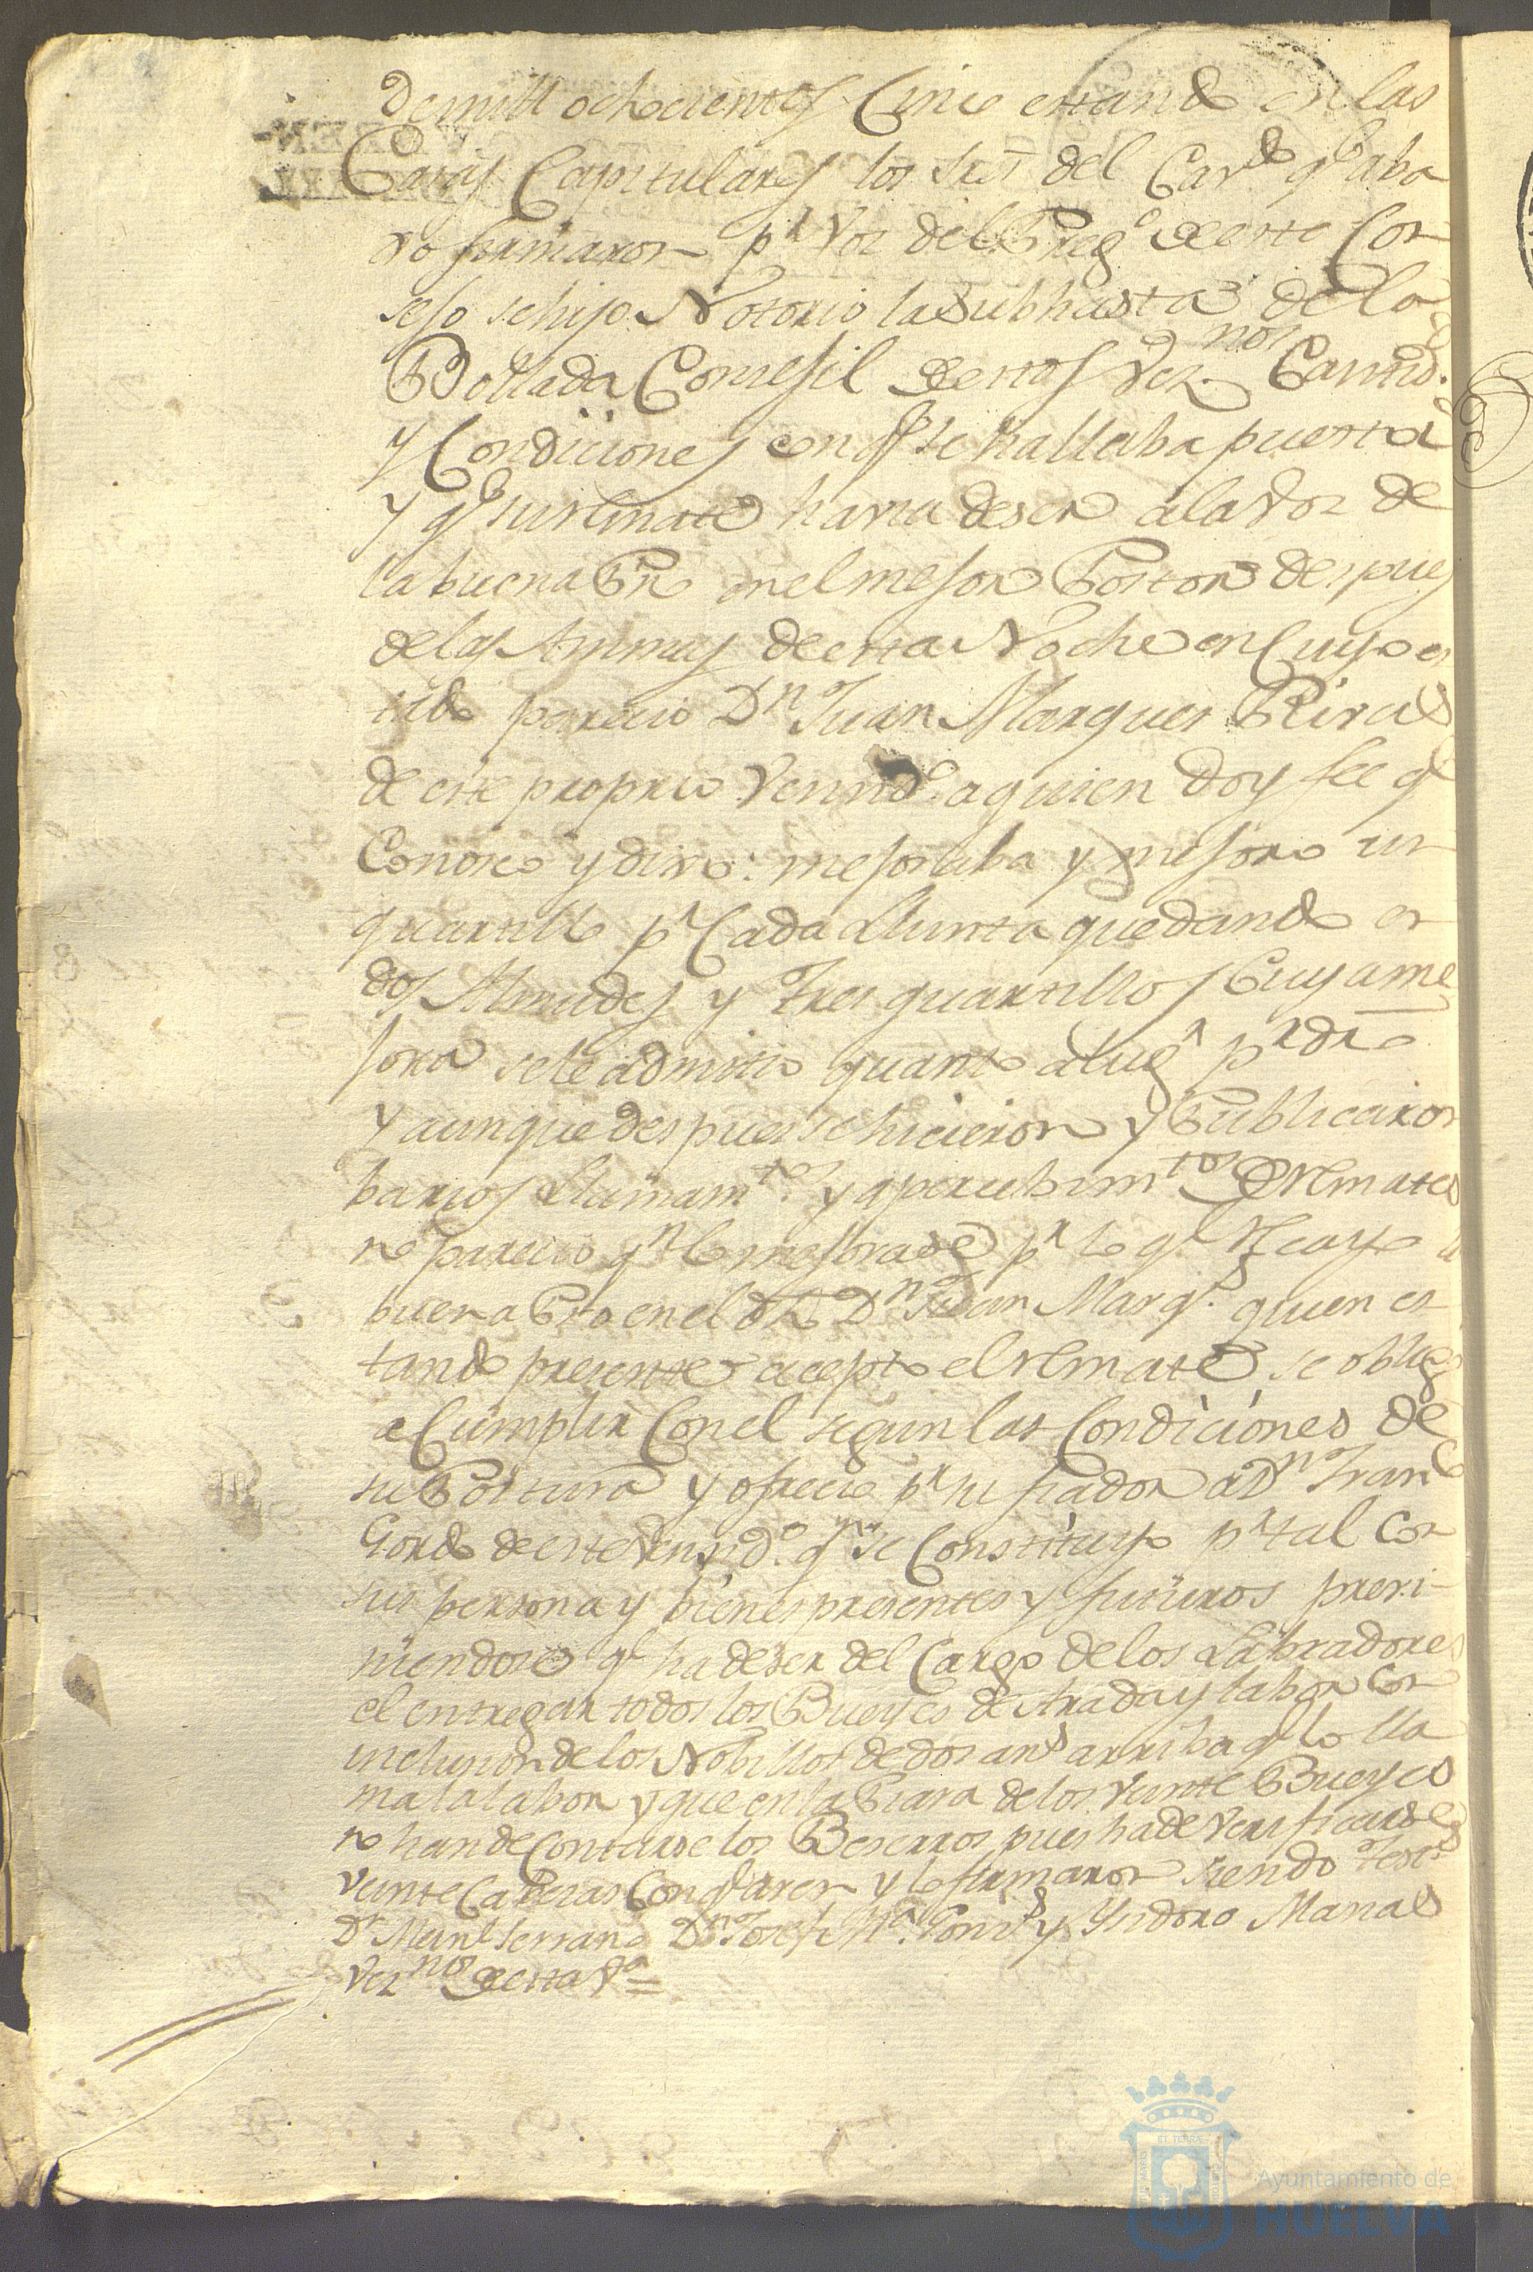 de mill ochocientos Cinco estando en las
Casas Capitulares los Sres del Cavdo qe aba
xo firmaron pr Voz del Prego de este Con
sejo se hijo Notorio la Subhasta de la
Bollada Consejil de estos Veznos Cantid.
y Condiciones con qe se hallaba puesta
y qe su rematte havia de ser a la Voz de
la buena Pro en el mejor Postor despues
de las Animas de esta Noche en Cuyo es
tado parecio Dn Juan Marques
de este proprio Vecindo a quien doy fee qe
Conosco y dixo: mejoraba y mejoro un
quartillo pr Cada llunta quedando en
dos Almudes y tres quartillos Cuya me
jora se le admitio quanto a lugr pr dro
y aunque despues se hicieron y Publicaron
barios llamamtos y apercebimtos de remate
no parecio qn lo mejorase pr lo qe recayo la
buena Pro en el dho Dn Juan Marqs quien es
tando presente acepto el remate se obligo
a Cumplir Con el segun las Condiciones de
su Postura y ofrecio pr su fiador a Dn Franco
Gordo de este Vecindo qn se Constituyo pr tal con
su persona y bienes presentes y futuros previ-
niendose qe ha de ser del Cargo de los Labradores
el entregar todos los Bueyes de Arada y labor con
inclusion de los Nobillos de dos ans arriba qe lo lla
ma la labor y que en la Piara de los veinte Bueyes
no han de Contarse los Beserros pues ha de verificarse
veinte Cabesas Con qe aren y lo firmaron siendo testgs
Dn Manl Serrano Dn Josef Ma y Ysidoro
Veznos de esta Va =
Ayuntamiento de
HUELVA